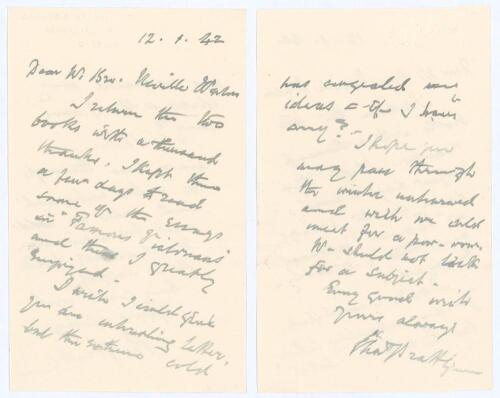 12. 1. 42
Dear W. Bro. Neville Weston
I return the two
books with a thousand
thanks. I kept them
a few days to read
some of the Essays
in "Famous
and these I greatly
Enjoyed -
I wish I could give
you an interesting letter,
but this extreme cold
has congealed
ideas - if I have
any? - I hope you
may pass through
the winter unharmed
and wish we could
meet for a pow-wow.
We should not lack
for a subject -
Every good wish
Yours always